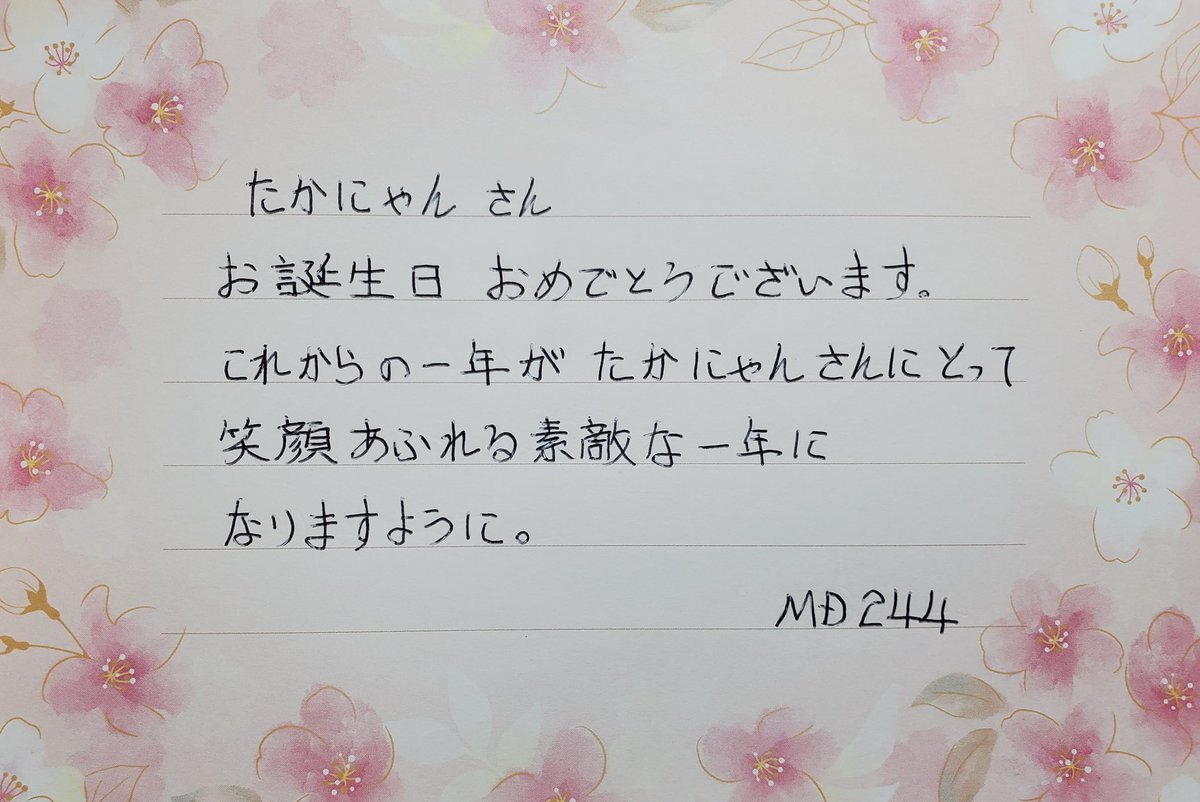 たかにゃん さん
お誕生日 おめでとうございます。
これからの一年が たかにゃんさんにとって
笑顔あふれる素敵な一年に
なりますように。
MD244